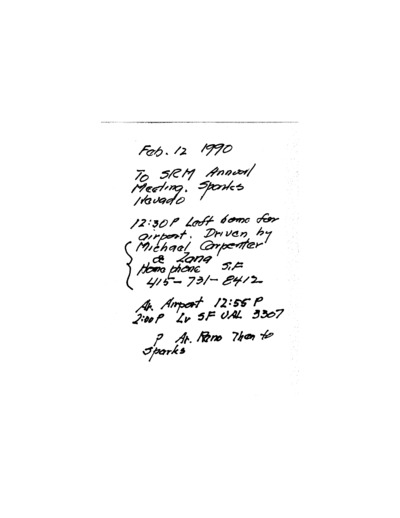 Feb. 12 1990
To SRM Annual
Meeting. Sparks
Nevado
12:30P Left home for
airport. Driven by
Michael Carpenter
& Zana
Home phone S.F
415-731-8412
Ar. Airport 12:55 P
2:00P Lv SF UAL 3307
P Ar. Reno Then to
Sparks